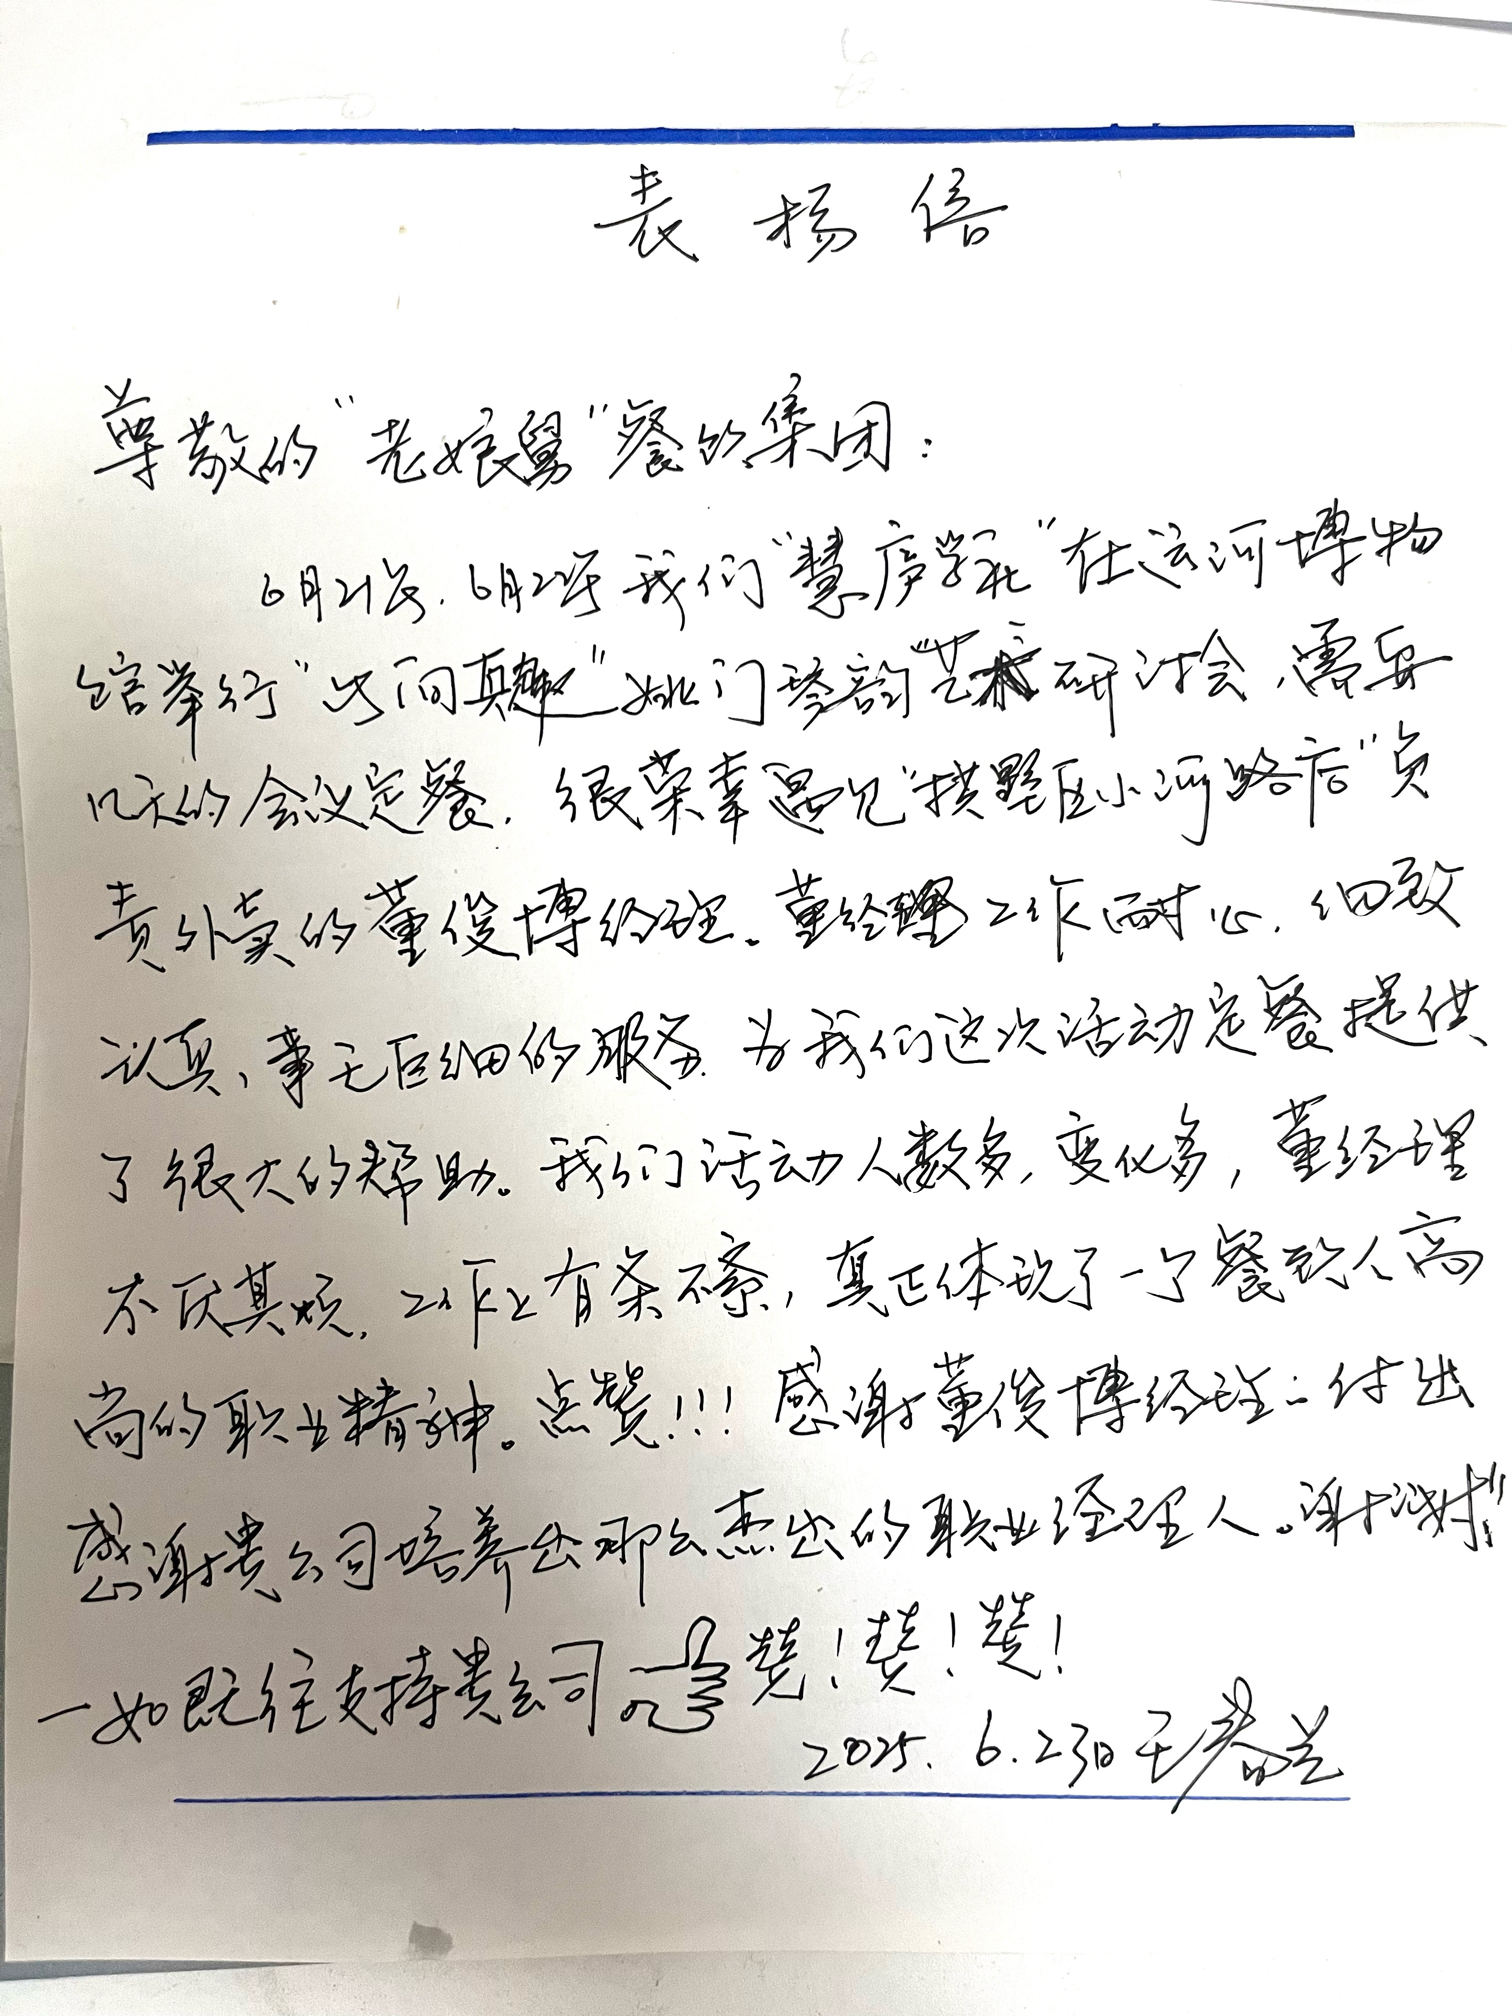 表扬信
尊敬的“老娘舅”餐饮集团：
6月21号、6月22号我们“慧庐学社”在运河博物
馆举行“此间真趣”姚门琴韵艺术研讨会，需要
几天的会议定餐，很荣幸遇见“拱墅区小河路店”负
责外卖的董俊博经理。董经理工作耐心、细致
认真、事无巨细的服务为我们这次活动定餐提供
了很大的帮助。我们活动人数多，变化多，董经理
不厌其烦，工作上有条不紊，真正体现了一个餐饮人高
尚的职业精神。点赞！！！感谢董俊博经理的付出
感谢贵公司培养出那么杰出的职业经理人。谢谢！
一如既往支持贵公司 赞！赞！赞！
2025.6.23日 王